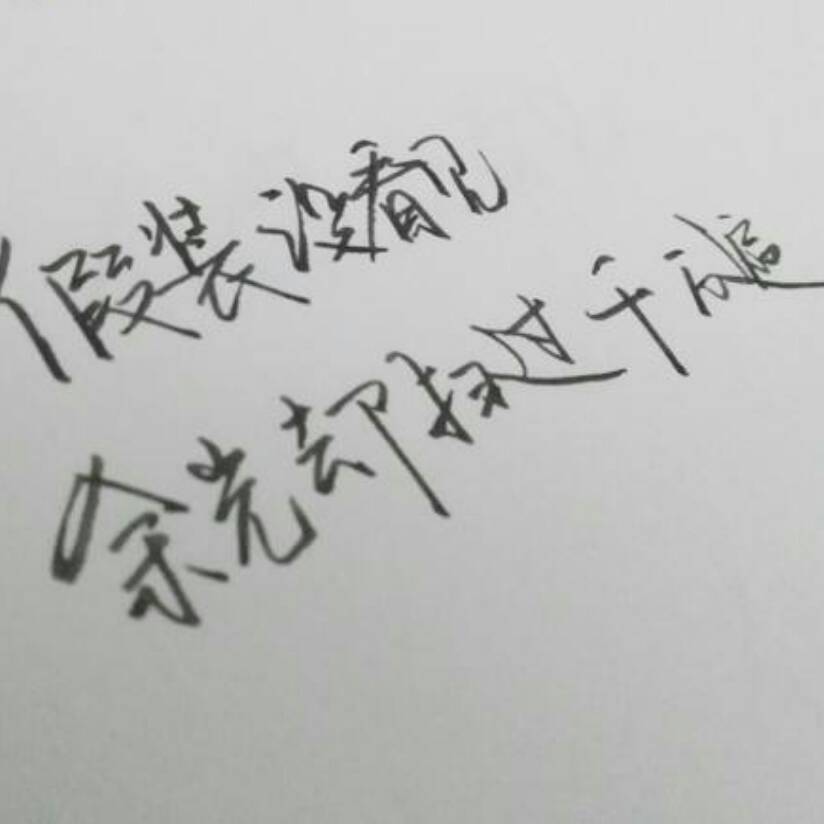 假装没看见
余光却扫过千万遍